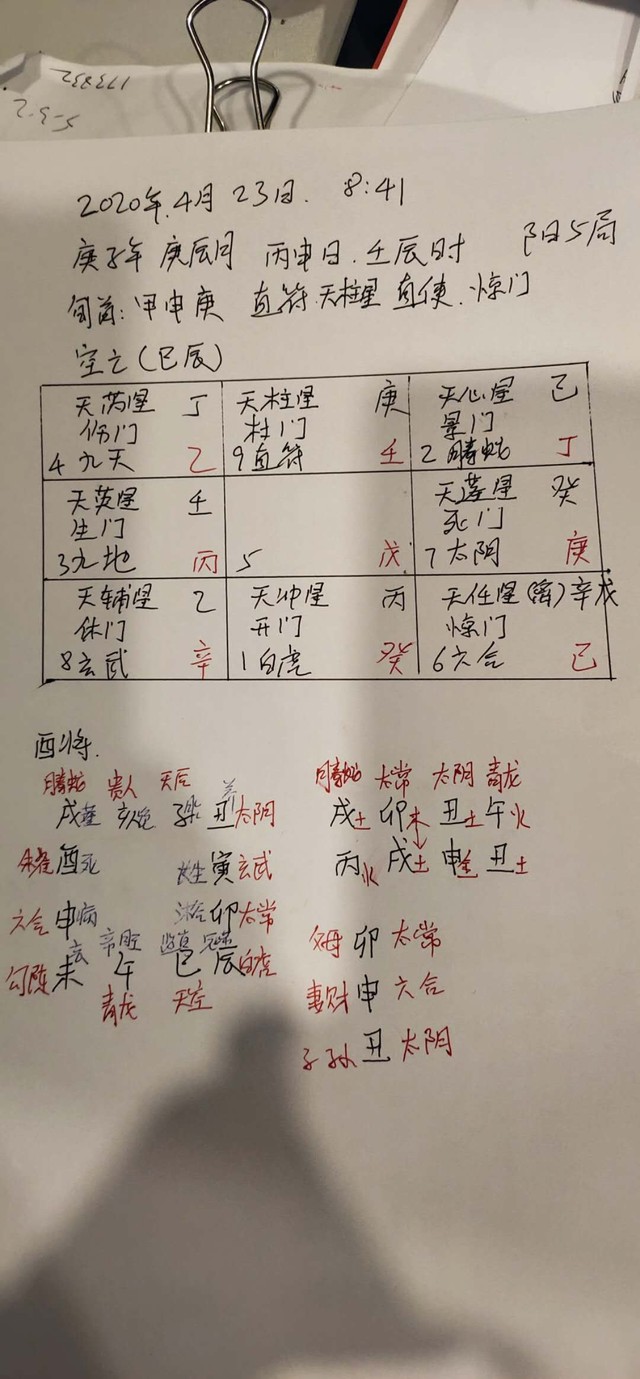 173832
5-3-2
2020年.4月 23日. 8:41
庚子年 庚辰月 丙申日.壬辰时 阳5局
旬首:甲申庚 直符.天柱星 直使.惊门
空亡(巳辰)
天芮星 丁 天柱星 庚 天心星 己
伤门 杜门 景门
4 九天 乙 9直符 壬 2螣蛇 丁
天英星 壬 天蓬星 癸
生门 死门
3九地 丙 5 戊 7太阴 庚
天辅星 乙 天冲星 丙 天任星(禽)辛戊
休门 开门 惊门
8玄武 辛 1白虎 癸 6六合 己
酉将.
螣蛇 贵人 天后 养
戌墓 亥绝 子胎 丑太阴
朱雀酉死 长生寅玄武
六合申病 沐浴卯太常
勾陈未 午 巳 辰白虎
青龙 天空
螣蛇 太常 太阴 青龙
戌土 卯木 丑土 午火
丙火 戌土 申金 丑土
父母 卯 太常
妻财 申 六合
子孙 丑 太阴